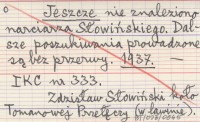 Jeszcze nie znaleziono
narciarza Słowińskiego. Dal-
sze poszukiwania prowadzone
są bez przerwy. 1937. —
IKC nr 333.
Zdzisław Słowiński koło
Tomanowej Przełęczy (w lawinie).